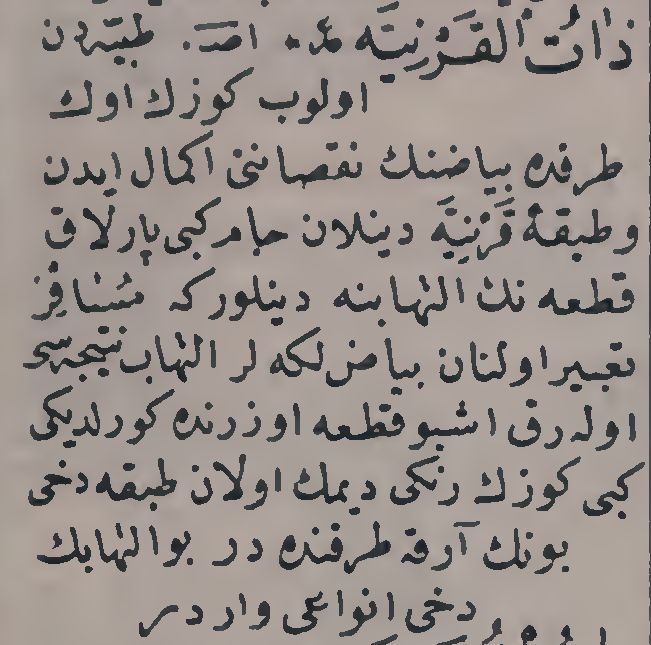 ذَاتُ ٱلْقَرْنِيَّه ع. اصـ. طبيّه‌دن
اولوب كوزك اوك
طرفنده بياضنك نقصاننى اكمال ايدن
وطبقهٔ قَرْنِيَّه دينلان جام كبى پارلاق
قطعه نك التهابنه دينلور كه مُسَافِرْ
تعبير اولنان بياض لكه لر التهاب نتيجه سى
اوله رق اشبو قطعه اوزرنده كورلديكى
كبى كوزك رنكى ديمك اولان طبقه دخى
بونك آرقه طرفنده در بو التهابك
دخى انواعى وار در